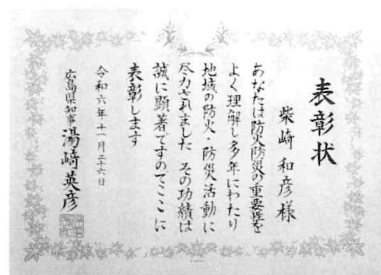 表彰状
柴崎和彦様
あなたは防火防災の重要性を
よく理解し多年にわたり
地域の防火・防災活動に
尽力されました その功績は
誠に顕著ですのでここに
表彰します
令和六年十一月二十六日
広島県知事 湯﨑英彦